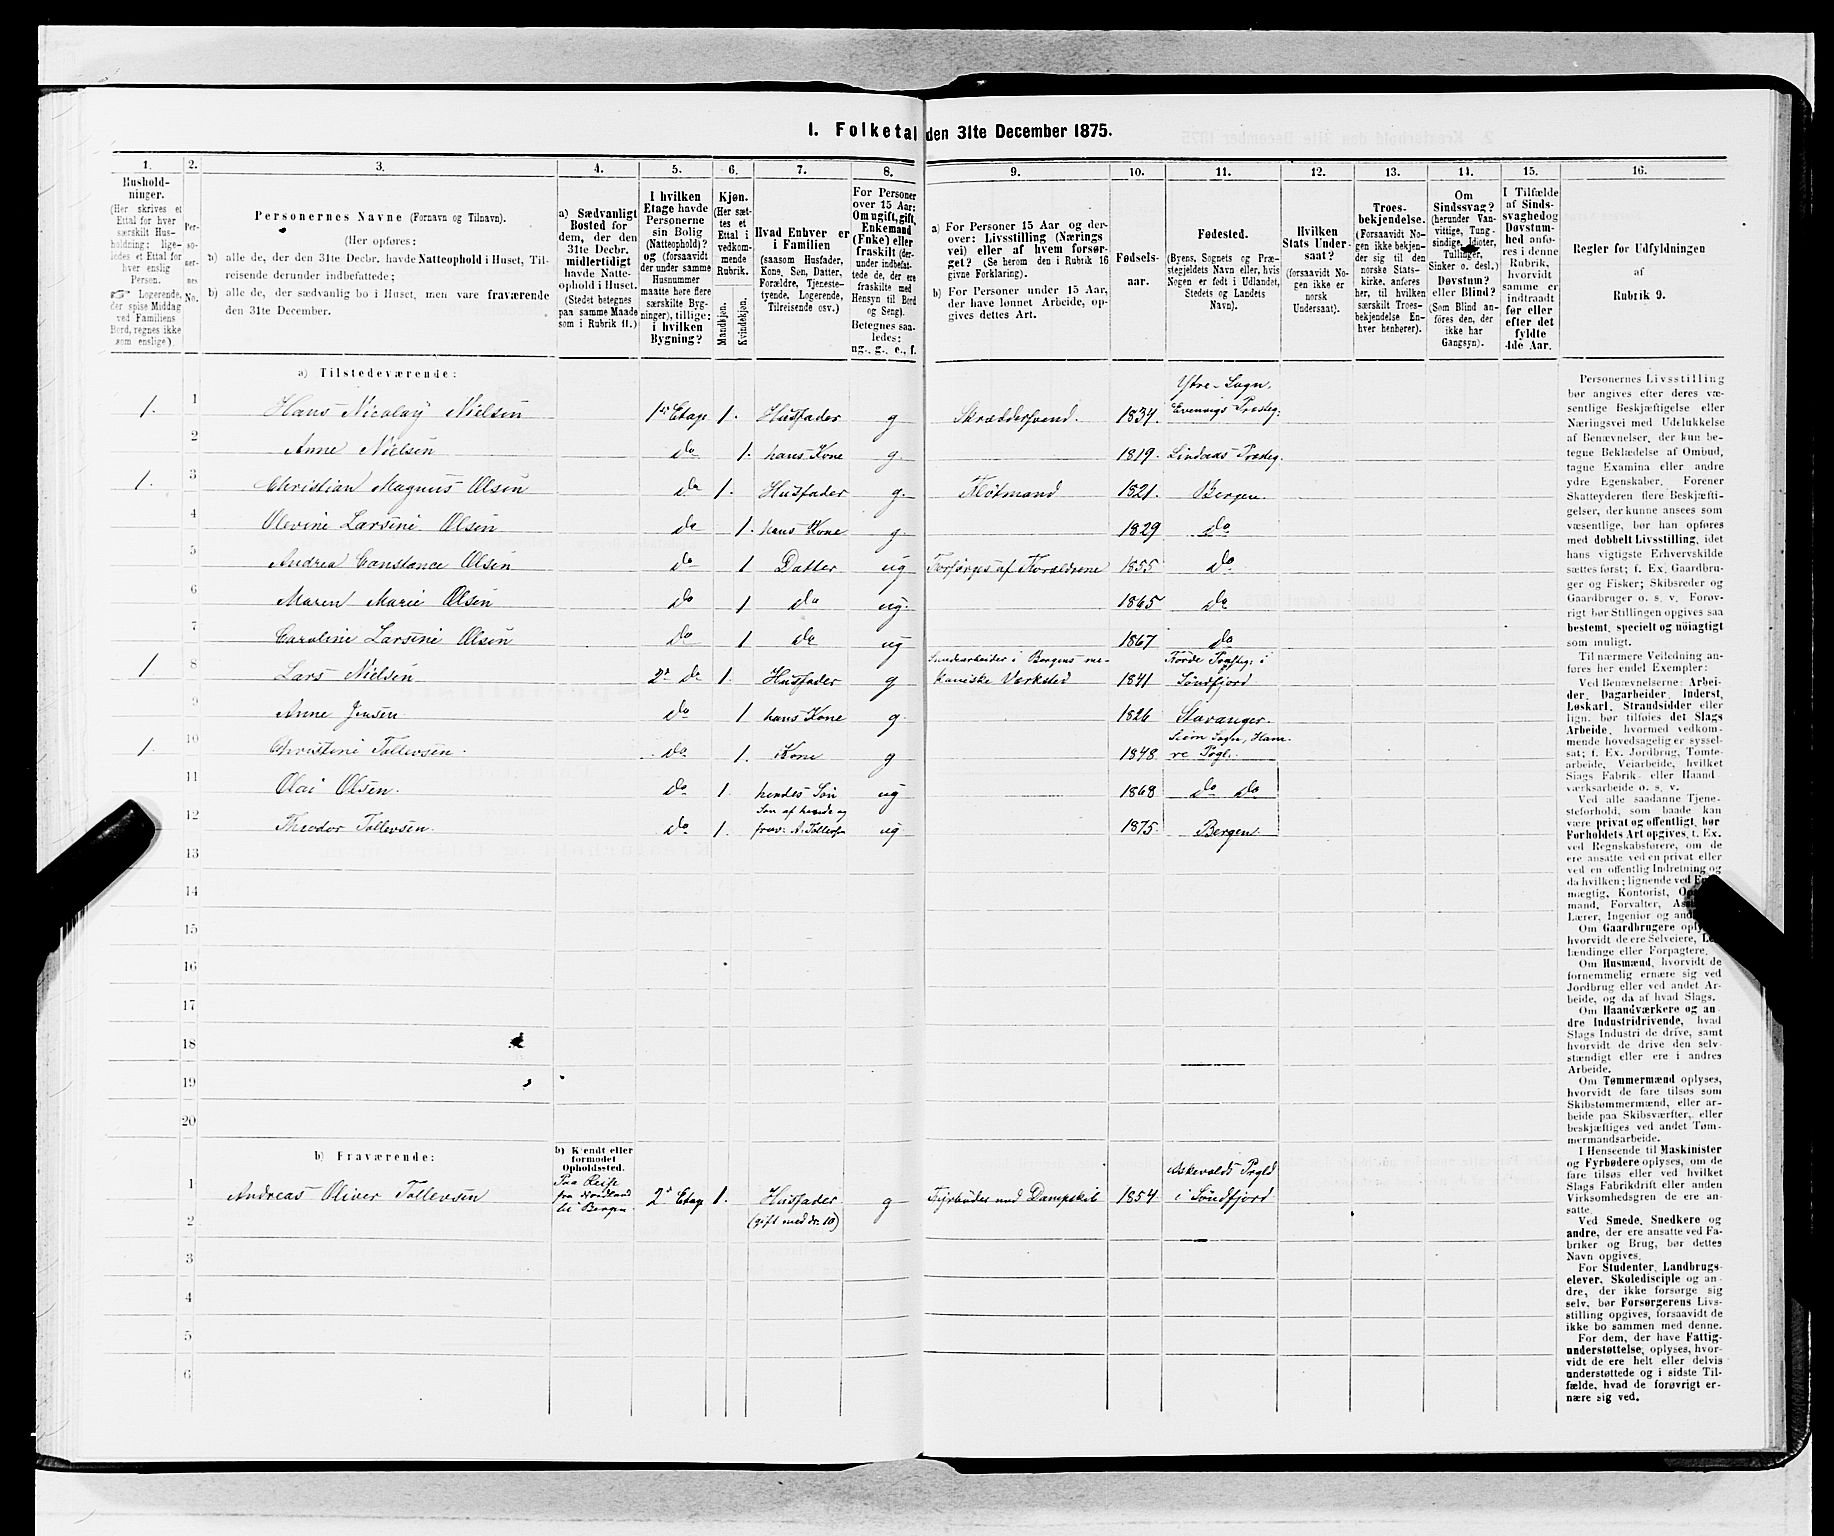 1. Folketal den 31te December 1875.
1. 2. 3. 4. 5. 6. 7. 8. 9. 10. 11. 12. 13. 14. 15. 16.
Hushold-
ninger.
(Her skrives et
Ettal for hver
særskilt Hus-
holdning; lige-
ledes et Ettal for
hver enslig
Person.
☞ Logerende,
der spise Middag
ved Familiens
Bord, regnes ikke
som enslige).
Per-
so-
ner-
nes
No.
Personernes Navne (Fornavn og Tilnavn).
(Her opføres:
a) alle de, der den 31te Decbr. havde Natteophold i Huset, Til-
reisende derunder indbefattede;
b) alle de, der sædvanlig bo i Huset, men vare fraværende
den 31te December.
a) Sædvanligt
Bosted for
dem, der den
31te Decbr.
midlertidigt
havde Natte-
ophold i Huset.
(Stedet betegnes
paa samme Maade
som i Rubrik 11.)
I hvilken
Etage havde
Personerne
sin Bolig
(Natteophold)?
og (forsaavidt
der under samme
Husnummer
maatte høre flere
særskilte Byg-
ninger), tillige:
i hvilken
Bygning?
Kjøn.
(Her sæt-
tes et
Ettal i
vedkom-
mende
Rubrik.
Mandkjøn.
Kvindekjøn.
Hvad Enhver er
i Familien
(saasom Husfader,
Kone, Søn, Datter,
Forældre, Tjeneste-
tyende, Logerende,
Tilreisende osv.)
For Personer
over 15 Aar:
Om ugift, gift,
Enkemand
(Enke) eller
fraskilt (der-
under indbefat-
tede de, der ere
fraskilte med
Hensyn til Bord
og Seng).
Betegnes saa-
ledes:
ug., g., e., f.
a) For Personer 15 Aar og der-
over: Livsstilling (Nærings
vei) eller af hvem forsør-
get? (Se herom den i Rubrik 16
givne Forklaring).
b) For Personer under 15 Aar,
der have lønnet Arbeide, op-
gives dettes Art.
Fødsels-
aar.
Fødested.
(Byens, Sognets og Præ-
stegjeldets Navn eller, hvis
Nogen er født i Udlandet,
Stedets og Landets
Navn).
Hvilken
Stats Under-
saat?
(forsaavidt No-
gen ikke er
norsk
Undersaat).
Troes-
bekjendelse.
(Forsaavidt No-
gen ikke bekjen-
der sig til den
norske Stats-
kirke, anføres
her, til hvilken
særskilt Troes-
bekjendelse En-
hver henhører).
Om
Sindssvag?
(herunder Van-
vittige, Tung-
sindige, Idioter,
Tullinger,
Sinker o. desl.)
Døvstum?
eller Blind?
(Som Blind an-
føres den, der
ikke har
Gangsyn).
I Tilfælde
af Sinds-
svaghed og
Døvstum-
hed anfø-
res i denne
Rubrik,
hvorvidt
samme er
indtraadt
før eller
efter det
fyldte
4de Aar.
Regler for Udfyldningen
af
Rubrik 9.
a) Tilstedeværende:
Ytre-Sogn,
1. 1 Hans Nicolay Nielsen 1ste Etage 1. Husfader g Skrædersvend. 1834. Evenvigs Præsteg:
2 Anne Nielsen do 1. hans Kone g. 1819. Lindaas Præsteg.
1. 3 Christian Magnus Olsen do 1. Husfader g. Fløtmand 1821. Bergen
4 Olevine Larsine Olsen do 1. hans Kone g. 1829 do
5 Andrea Constance Olsen do 1 Datter ug Forsørges af Forældrene 1855 do
6 Maren Marie Olsen do 1 do ug. 1865 do
7 Caroline Larsine Olsen do 1 do ug 1867 do
arbeider i Bergens me- Førde Præsteg: i
1 8 Lars Nielsen 2d do 1. Husfader g kaniske Værksted 1841 Søndfjord
9 Anne Jensen do 1 hans Kone g. 1826 Stavanger.
Sogn, Ham-
1. 10 Christine Tollevsen. do 1. Kone g 1848 re Pgl.
11 Olai Olsen. do 1. hendes Søn ug 1868 do do
Søn af hende og
12 Theodor Tollevsen. do 1. frav: A. Tollevsen ug 1875. Bergen
13
14
15
16
17
18
19
20
b) Fraværende:
b) Kjendt eller
formodet
Opholdssted.
Paa Reise
fra Nordland
til Bergen.
Askevolds Prgld
1 Andreas Oliver Tollevsen 2d Etage 1. Husfader g Fyrbøder med Dampskib 1854 i Søndfjord
2 (gift med Nr. 10)
3
4
5
6
Personernes Livsstilling
bør angives efter deres væ-
sentlige Beskjæftigelse eller
Næringsvei med Udelukkelse
af Benævnelser, der kun be-
tegne Beklædelse af Ombud,
tagne Examina eller andre
ydre Egenskaber. Forener
Skatteyderen flere Beskjæfti-
gelser, der kunne ansees som
væsentlige, bør han opføres
med dobbelt Livsstilling, idet
hans vigtigste Erhvervskilde
sættes først; f. Ex. Gaardbru-
ger og Fisker; Skibsreder og
Gaardbruger o. s. v. Forøv-
rigt bør Stillingen opgives saa
bestemt, specielt og nöiagtigt
som muligt.
Til nærmere Veiledning an-
føres her endel Exempler:
Ved Benævnelserne: Arbei-
der, Dagarbeider, Inderst,
Løskarl, Strandsidder eller
lign. bør tilføies det Slags
Arbeide, hvormed vedkom-
mende hovedsagelig er syssel-
sat; f. Ex. Jordbrug, Tomte-
arbeide, Veiarbeide, hvilket
Slags Fabrik- eller Haand-
værksarbeide o. s. v.
Ved alle saadanne Tjene-
steforhold, som baade kan
være privat og offentligt, bør
Forholdets Art opgives, f. Ex.
ved Regnskabsførere, om de
ere ansatte ved en privat eller
ved en offentlig Indretning og
da hvilken; lignende ved
mægtig, Kontorist,
mand, Forvalter,
Lærer, Ingeniør og
Om Gaardbrugere
hvorvidt de ere Selveiere,
lændinge eller Forpagtere.
Om Husmænd, hvorvidt de
fornemmelig ernære sig ved
Jordbrug eller ved andet Ar-
beide, og da af hvad Slags.
Om Haandværkere og an-
dre Industridrivende, hvad
Slags Industri de drive, samt
hvorvidt de drive den selv-
stændigt eller ere i andres
Arbeide.
Om Tømmermænd oplyses,
hvorvidt de fare tilsøs som
Skibstømmermænd, eller ar-
beide paa Skibsværfter, eller
beskjæftiges ved andet Tøm-
mermandsarbeide.
I Henseende til Maskinister
og Fyrbødere oplyses, om de
fare tilsøs eller ved hvilket
Slags Fabrikdrift eller anden
Virksomhedsgren de ere an-
satte.
Ved Smede, Snedkere og
andre, der ere ansatte ved Fa-
briker og Brug, bør dettes
Navn opgives.
For Studenter, Landbrugs-
elever, Skoledisciple og an-
dre, der ikke forsørge sig
selv, bør Forsørgerens Livs-
stilling opgives, forsaavidt de
ikke bo sammen med denne.
For dem, der have Fattig-
understøttelse, oplyses, hvor-
vidt de ere helt eller delvis
understøttede og i sidste Til-
fælde, hvad de forøvrigt er-
nære sig ved.